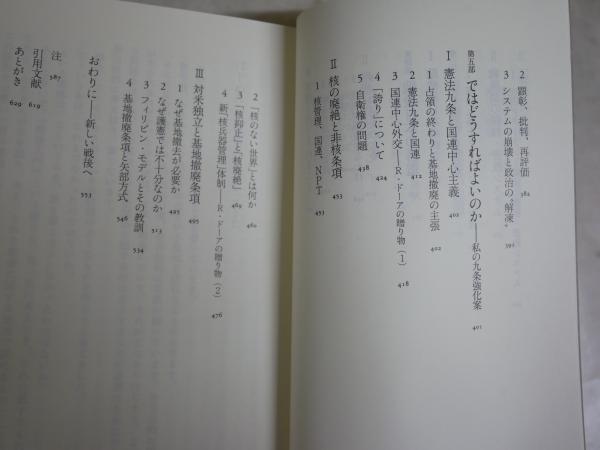 2 顕彰、批判、再評価 382
3 システムの崩壊と政治の“解凍” 391
第五部 ではどうすればよいのか——私の九条強化案 401
Ⅰ 憲法九条と国連中心主義 402
1 占領の終わりと基地撤廃の主張 402
2 憲法九条と国連 412
3 国連中心外交——R・ドーアの贈り物（1） 418
4 「誇り」について 424
5 自衛権の問題 438
Ⅱ 核の廃絶と非核条項 453
1 核管理、国連、NPT 453
2 「核のない世界」とは何か 460
3 「核抑止」と「核廃絶」 469
4 新「核兵器管理」体制——R・ドーアの贈り物（2） 476
Ⅲ 対米独立と基地撤廃条項 495
1 なぜ基地撤去が必要か 495
2 なぜ護憲では不十分なのか 513
3 フィリピン・モデルとその教訓 534
4 基地撤廃条項と矢部方式 546
おわりに——新しい戦後へ 553
注 587
引用文献 619
あとがき 629